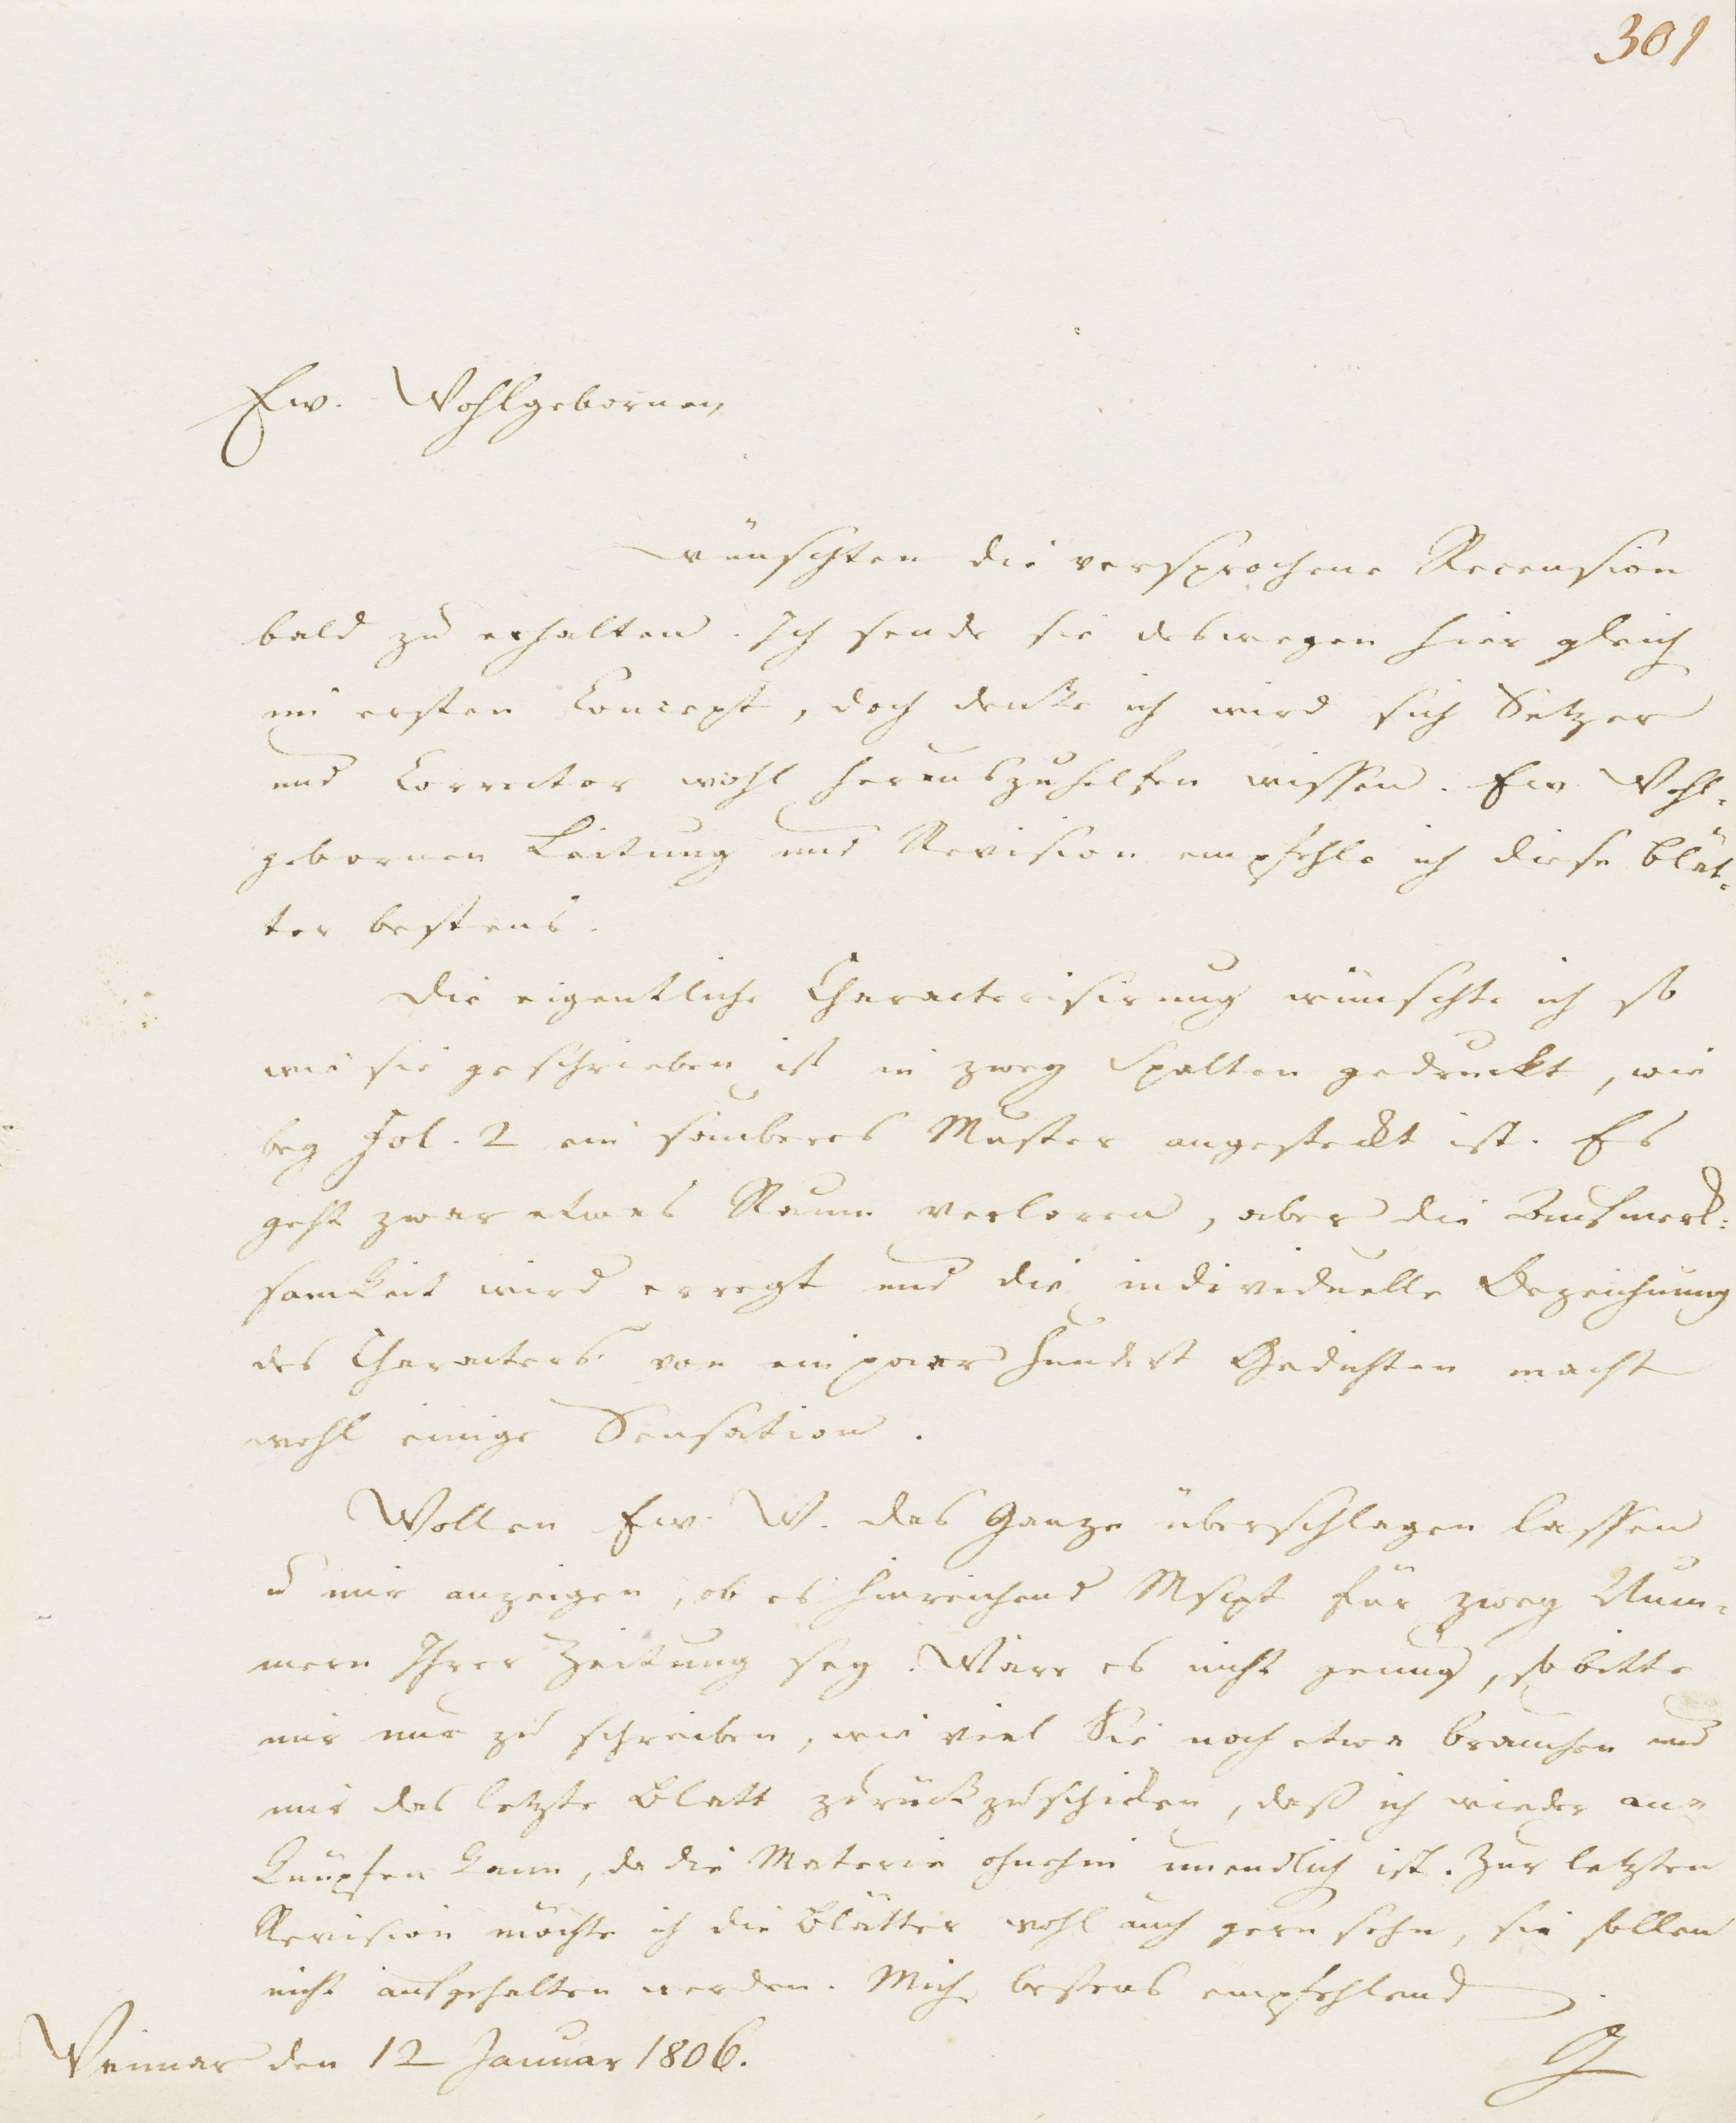 301
Ew. Wohlgebornen
wünschten die versprochene Recension
bald zu erhalten. Ich sende sie deswegen hier gleich
im ersten Concept, doch denke ich wird sich Setzer
und Corrector wohl herauszuhelfen wissen. Ew. Wohl-
gebornen Leitung und Revision empfehle ich diese Blät-
ter bestens.
Die eigentliche Characterisirung wünschte ich so
wie sie geschrieben ist in zwey Spalten gedruckt, wie
bey Fol. 2 ein sauberes Muster angesteckt ist. Es
geht zwar etwas Raum verloren, aber die Aufmerk-
samkeit wird erregt und die individuelle Bezeichnung
des Characters von ein paar hundert Gedichten macht
wohl einige Sensation.
Wollen Ew. W. das Ganze überschlagen lassen
u mir anzeigen, ob es hinreichend Mscpt für zwey Num-
mern Ihrer Zeitung sey. Wäre es nicht genug, so bitte
mir nur zu schreiben, wie viel Sie noch etwa brauchen und
mir das letzte Blatt zurückzuschicken, daß ich wieder an-
knüpfen kann, da die Materie ohnehin unendlich ist. Zur letzten
Revision möchte ich die Blätter wohl auch gern sehn, sie sollen
nicht aufgehalten werden. Mich bestens empfehlend
Weimar den 12 Januar 1806.
G